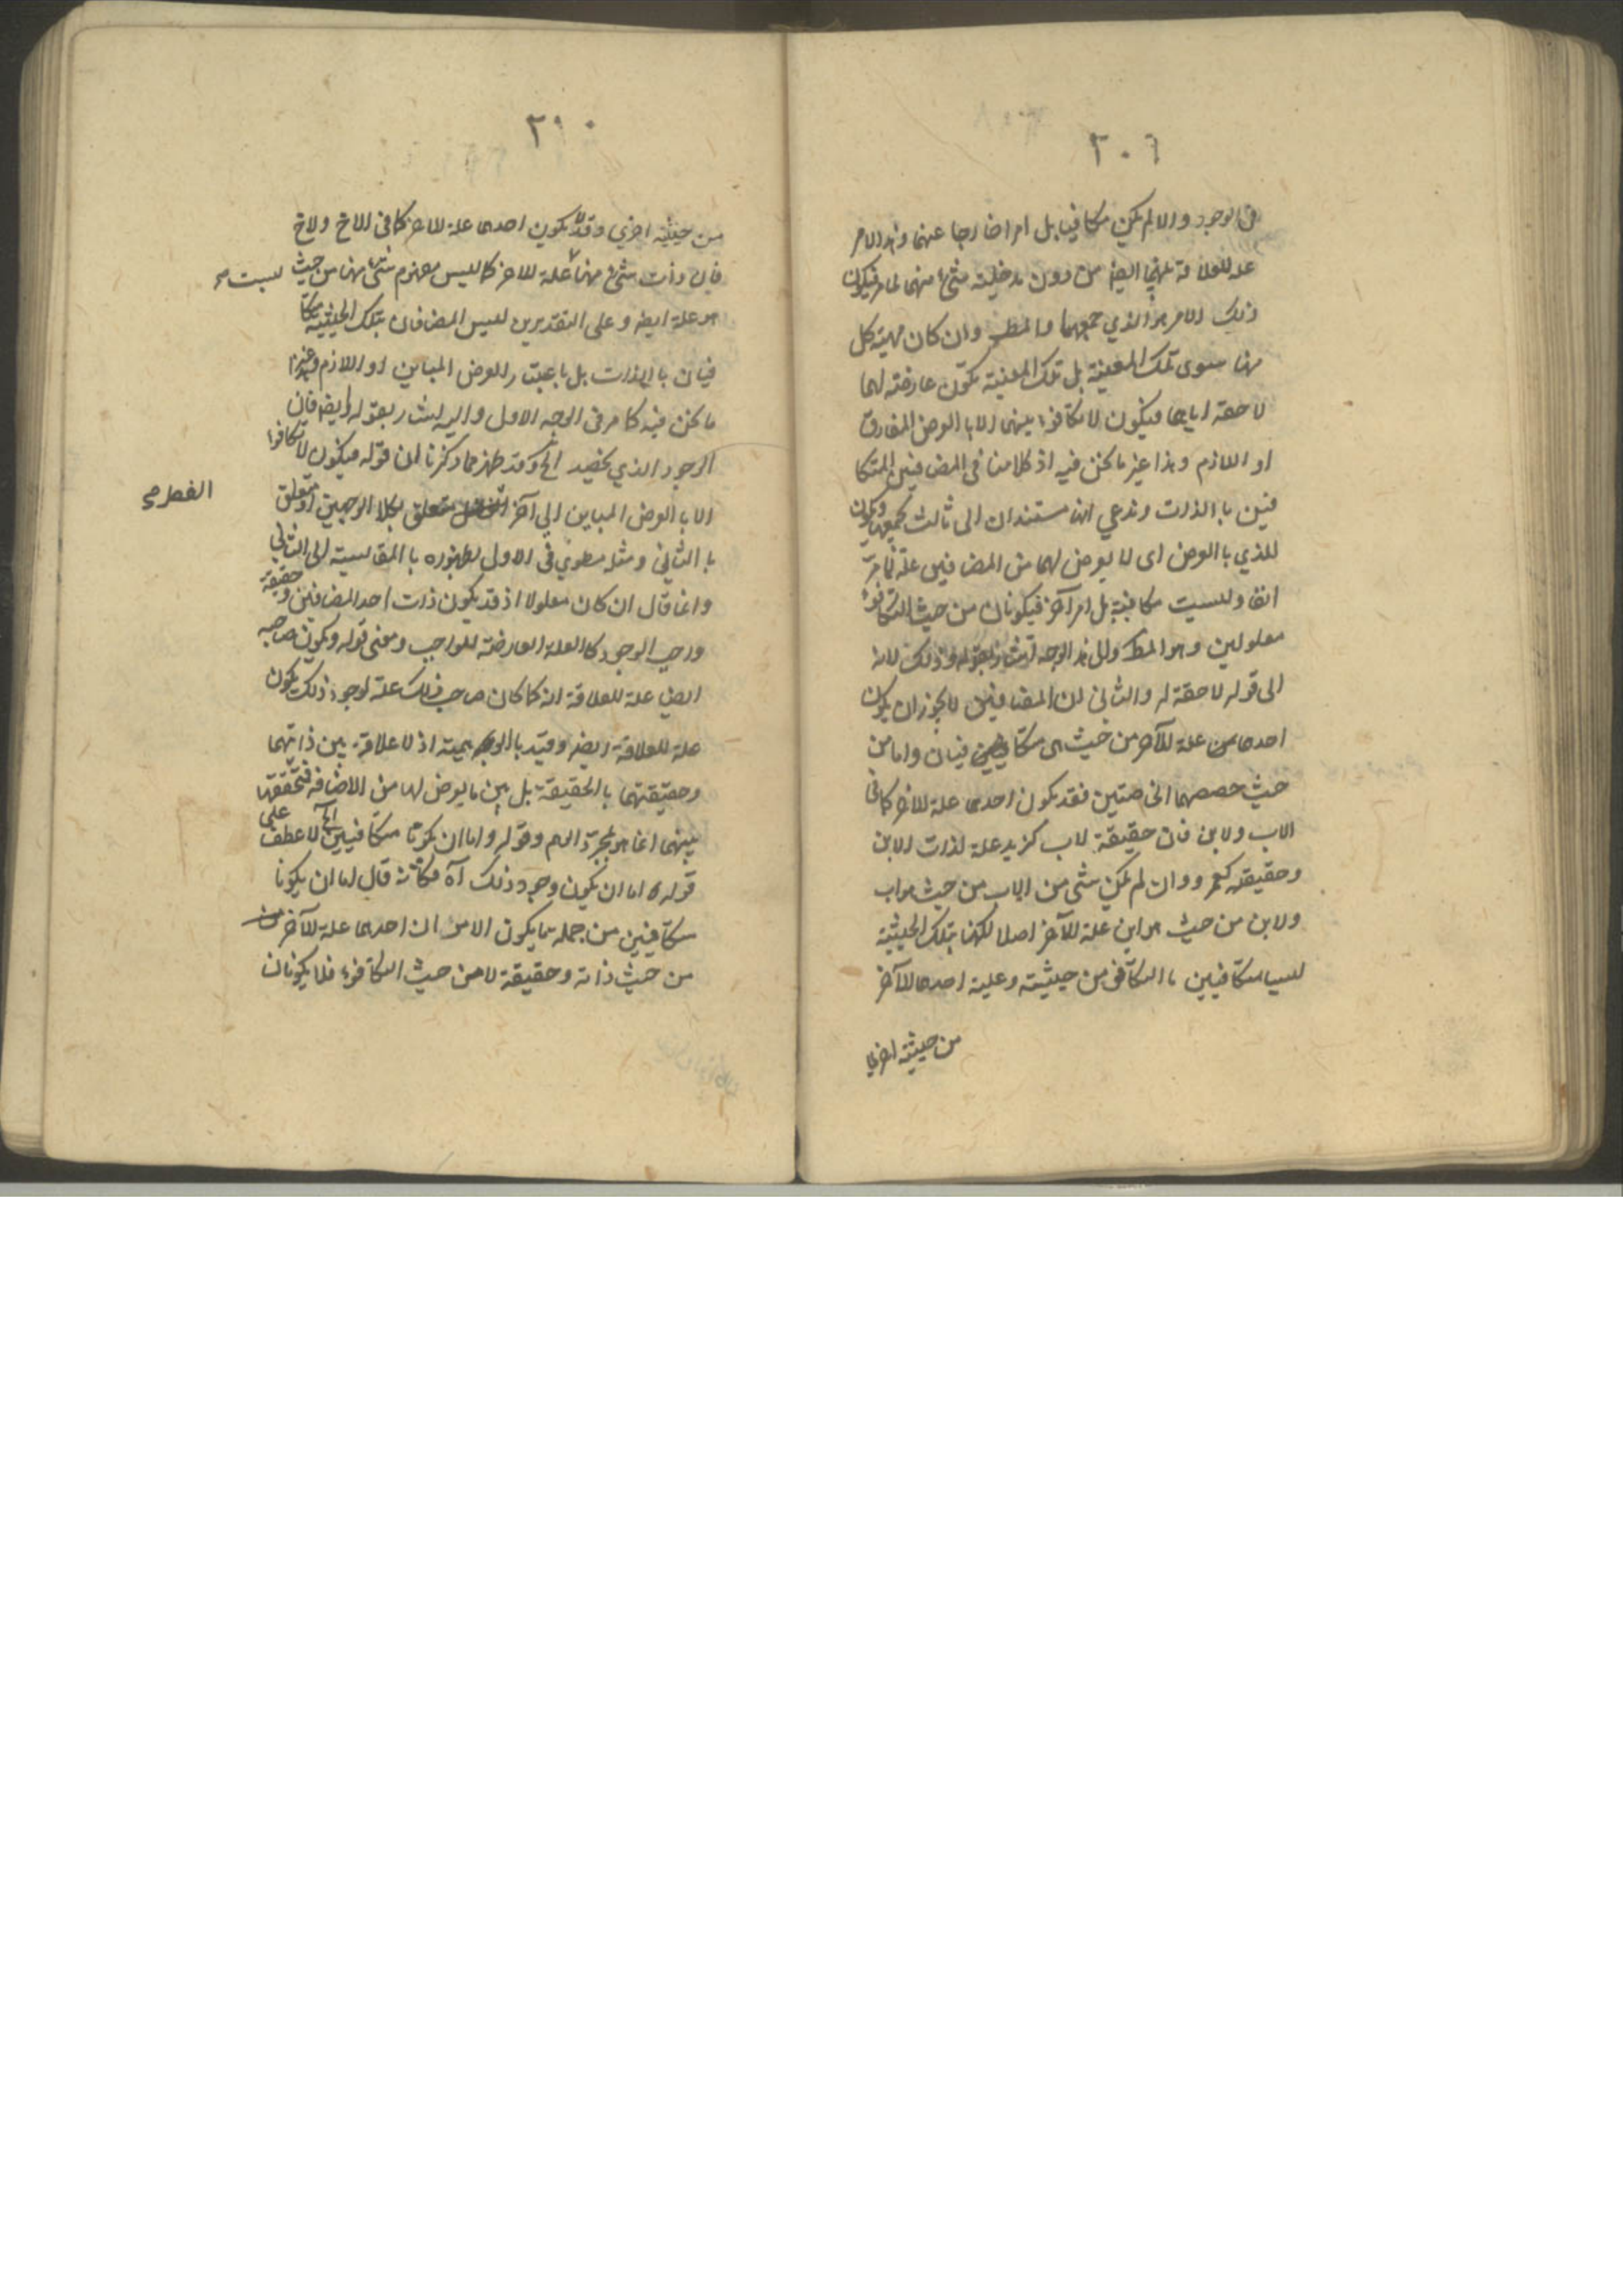 ٣٠٩
فى الوجود والا لم يكن مكافيا بل امرا خارجا عنهما وهذا الامر
علة للعلاقة بينهما ايضا من دون مدخلية شئ منهما لما مر فيكون
ذلك الامر هو الذي جمعهما والمط وان كان مهية كل
منهما سوى تلك المعينة بل تلك المعينة تكون عارضة لهما
لاحقة اياهما فيكون لا تكافوء بينهما الا با العرض المفارق
او اللازم وهذا غير ما نحن فيه اذ كلامنا فى المضافين المتكا
فين با الذات وندعي انهما مستندان الى ثالث يجمعهما ويكون
للذي با العرض اى لما يعرض لهما من المضافين علة ثامة
انفا وليست مكافية بل امر آخر فيكونان من حيث التكافوء
معلولين وهو المط والى هذا الوجه اشار بقوله وذلك لانه
الى قوله لاحقة له والثانى ان المضافين لا يجوز ان يكون
احدهما علة للآخر من حيث هما متكافيان واما من
حيث حصصهما الخاصتين فقد يكون احدهما علة للآخر كما فى
الاب ولابن فان حقيقة لاب كزيد علة لذات الابن
وحقيقته كعمرو وان لم يكن شئ من الاب من حيث هو اب
ولابن من حيث هو ابن علة للآخر اصلا لكنهما بتلك الحيثية
ليسا متكافيين با التكافى من حيثيته وعلية احدهما للآخر
من حيثية اخري
٣١٠
من حيثية اخري وقد لا يكون احدهما علة للاخر كما فى الاخ ولاخ
فان ذات شئ منهما ليست علة للاخر كما ليس مفهوم شئ منهما من حيث
هو علة ايضا وعلى التقديرين ليس المضافان بتلك الحيثية متكا
فيان با الذات بل با عبتار للعرض المباين او اللازم وغيرهما
ما نحن فيه كما مر فى الوجه الاول واليه اشار بقوله ايضا فان
الوجود الذي يخصه الخ وقد ظهر مما ذكرنا ان قوله فيكون لا تكافوا
الا با العرض المباين الى آخر الفصل متعلق بكلا الوجهين او متعلق
با الثاني ومثله مطوي فى الاول لظهوره با المقايسة الى الثاني
وانما قال ان كان معلولا اذ قد يكون ذات احد المضافين وحقيقة
واجب الوجود كا العلة العارضة للواجب ومعنى قوله ويكون صاحبه
ايضا علة للعلاقة انه كما كان صاحب ذلك علة لوجود ذلك يكون
علة للعلاقة ايضا وقيد با الوهمية اذ لا علاقة بين ذاتيهما
وحقيقتهما با الحقيقة بل بين ما يعرض لهما من الاضافة فتحققها
بينهما انما هو بمجرد الوهم وقوله واما ان يكونا متكافيين الخ لا عطف على
قوله اما ان يكون وجود ذلك آه فكانه قال اما ان يكونا
متكافيين من جملة ما يكون الامر ان احدهما علة للآخر من
من حيث ذاته وحقيقة لا من حيث التكافوء فلا يكونان